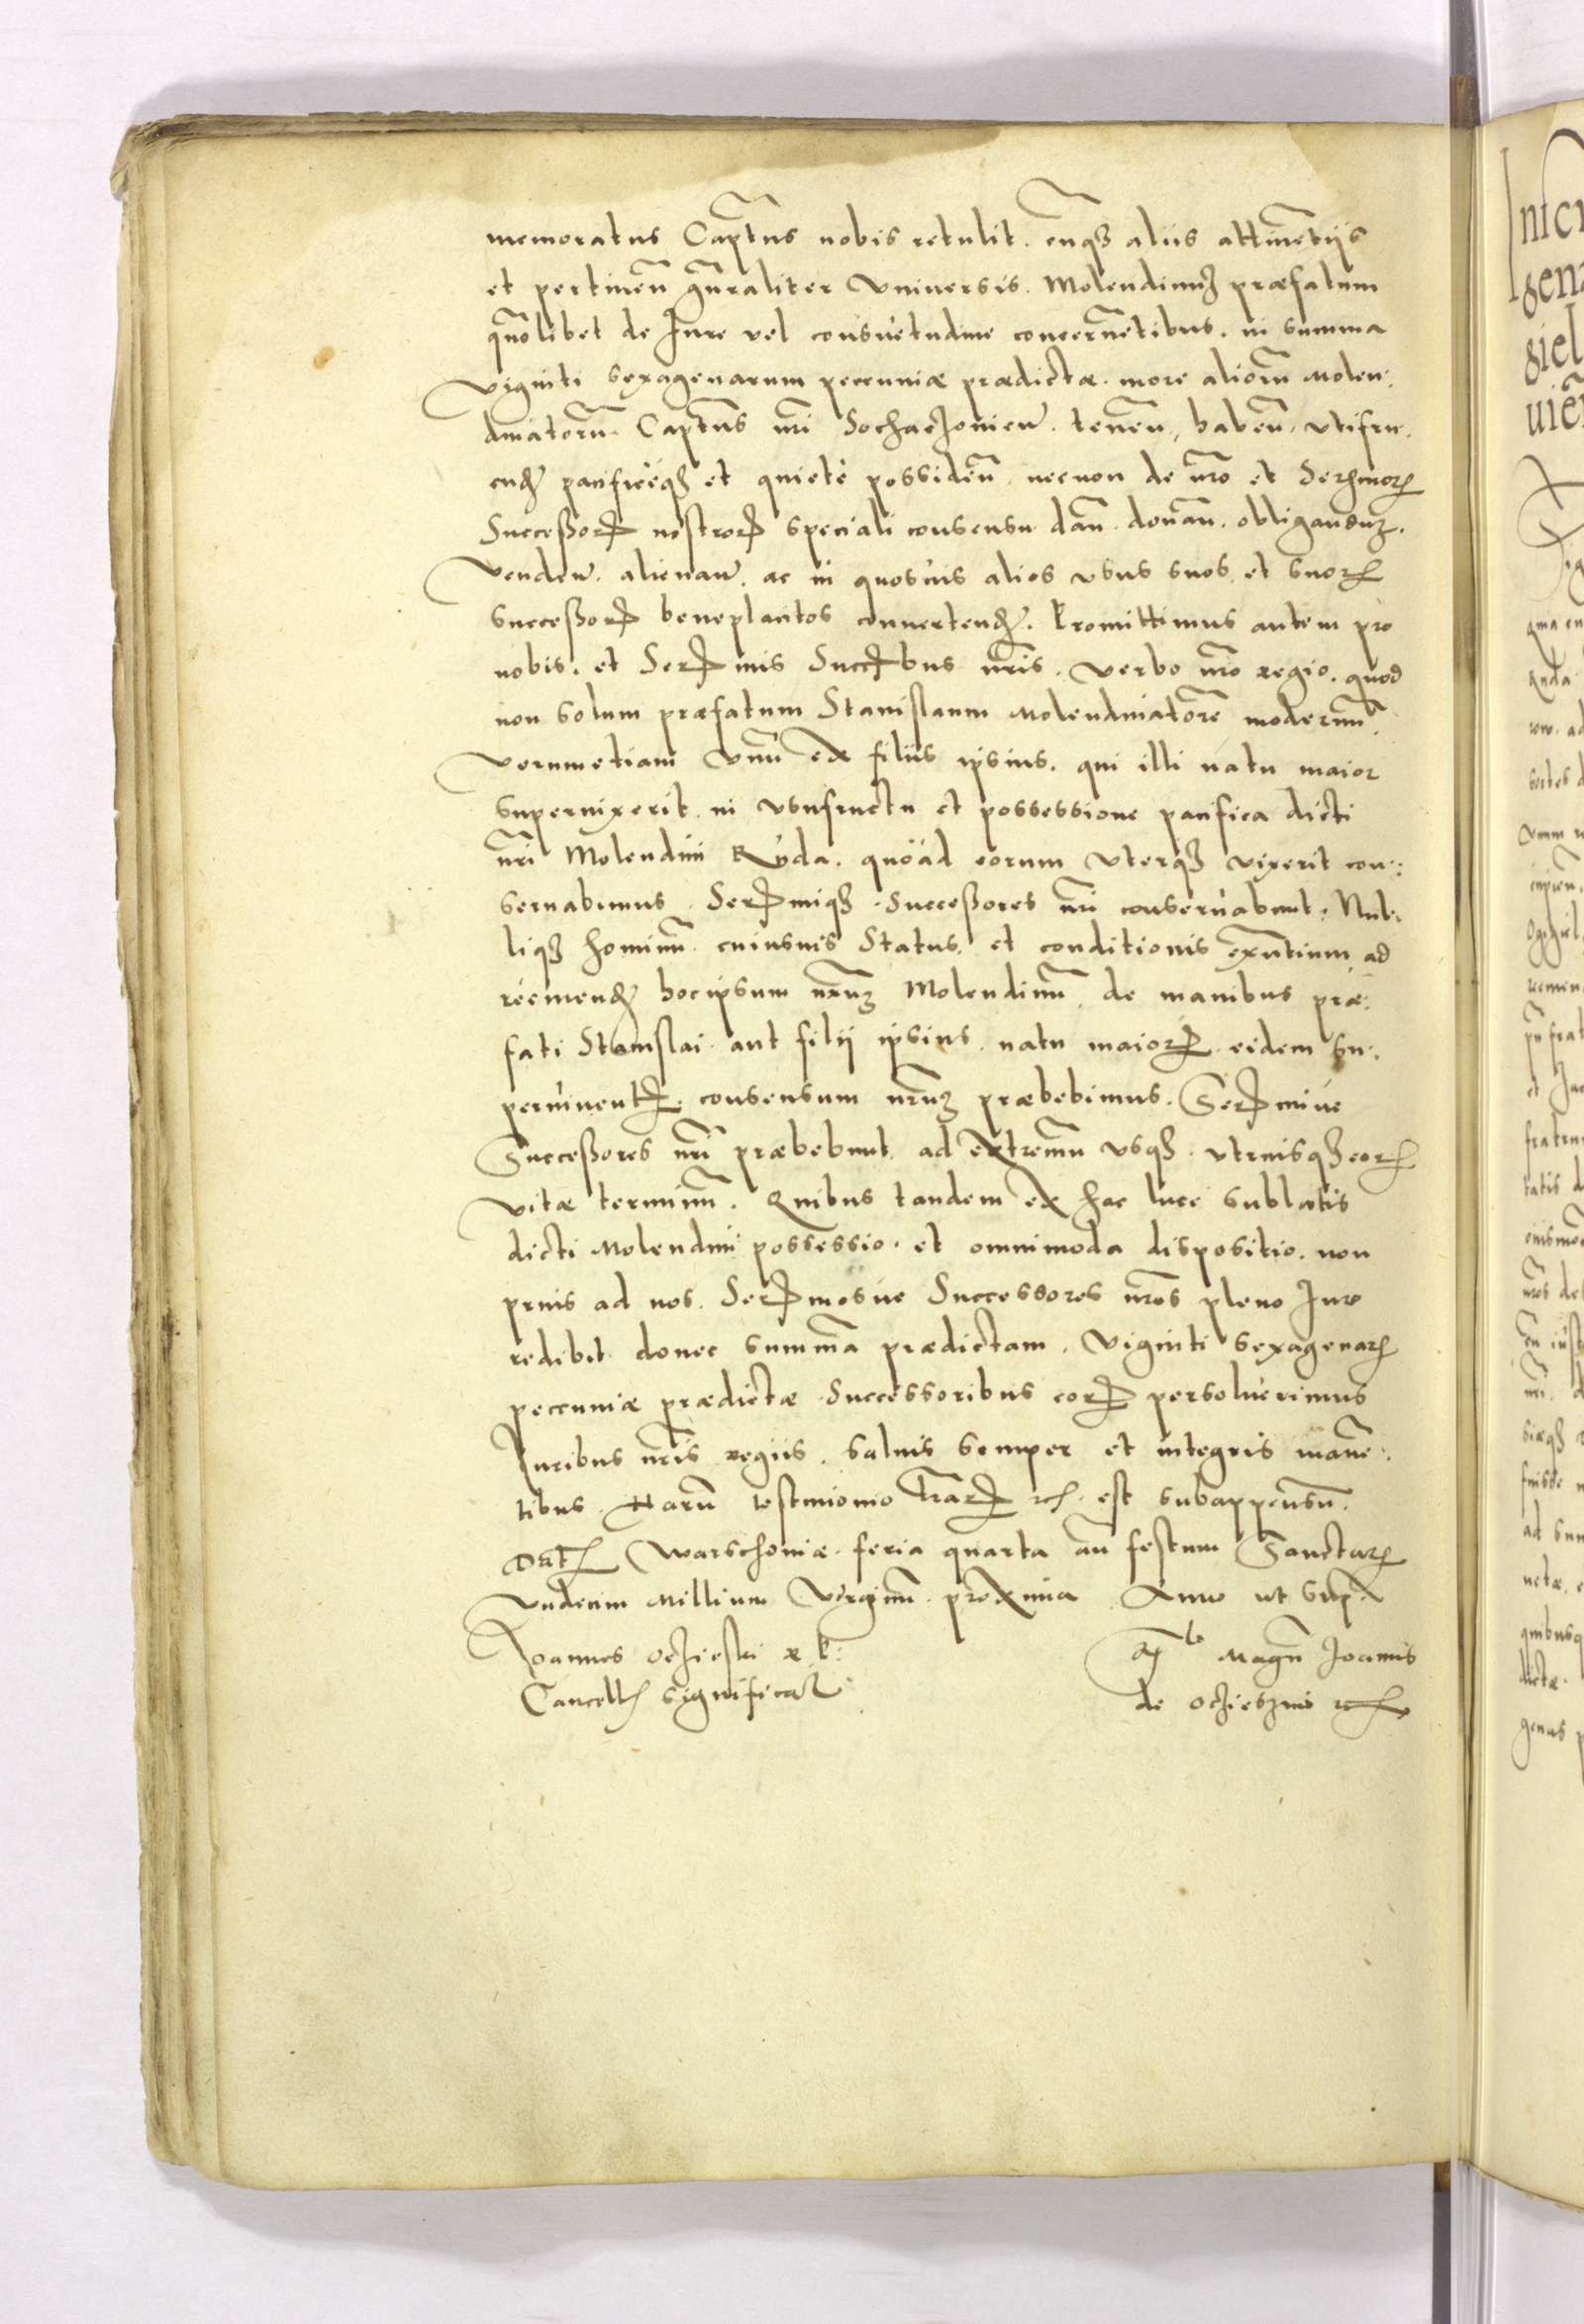 memoratus Captus nobis retulit. cuqʒ aliis attinetijs
et pertinen gnraliter Vniuersis. Molendinuʒ præfatum
quolibet de Iure vel consuetudine concernetibus. in summa
viginti sexagenarum peccuniæ prædictæ. more aliorū Molen:
dinatorū Captus nri Sochaczouien. tenen, haben, vtifru:
end pacificeqʒ et quiete possiden. necnon de nro et Sermor
Successor nostror speciali consensu dan. donan. obliganduʒ.
Venden. alienan. ac in quosuis alios vsus suos et suor
successor beneplacitos conuertend. Promittimus autem pro
nobis. et Ser mis Succrbus nris. verbo nro regio. quod
non solum præfatum Stanislaum Molendinatore modernū.
Verumetiam Vnū ex filiis ipsius. qui illi natu maior
superuixerit. in vsufructu et possessione pacifica dicti
nri Molendini Ruda. quoad eorum vterqʒ vixerit con:
seruabimus. Sermiqʒ Successores nri conseruabunt. Nul:
liqʒ hominū cuiusuis Status. et conditionis exntium ad
reemend hocipsum nruʒ Molendinū de manibus præ:
fati Stanislai. aut filii ipsius. natu maior eidem su:
peruiuent. consensum nruʒ præbebimus. Sermiue
Successores nri præbebunt. ad extremū vsqʒ vtriusqʒ eor
vitæ terminū. Quibus tandem ex hac luce sublatis
dicti Molendini possessio. et omnimoda dispositio. non
prius ad nos. Sermosue Successores nros pleno Iure
redibit donec summā prædictam. Viginti sexagenar
peccuniæ prædictæ Successoribus eor persoluerimus
Iuribus nris regiis. saluis semper et integris mane:
tibus. Harū testimonio lrar rc. est subappensū.
Dat Warschouiæ. feria quarta an festum Sanctar
vndecim Millium Virginū. proxima. Anno ut supra
Ioannes Oczieski R. P:
Cancell significat
Magn Ioannis
de Oczieszini rc